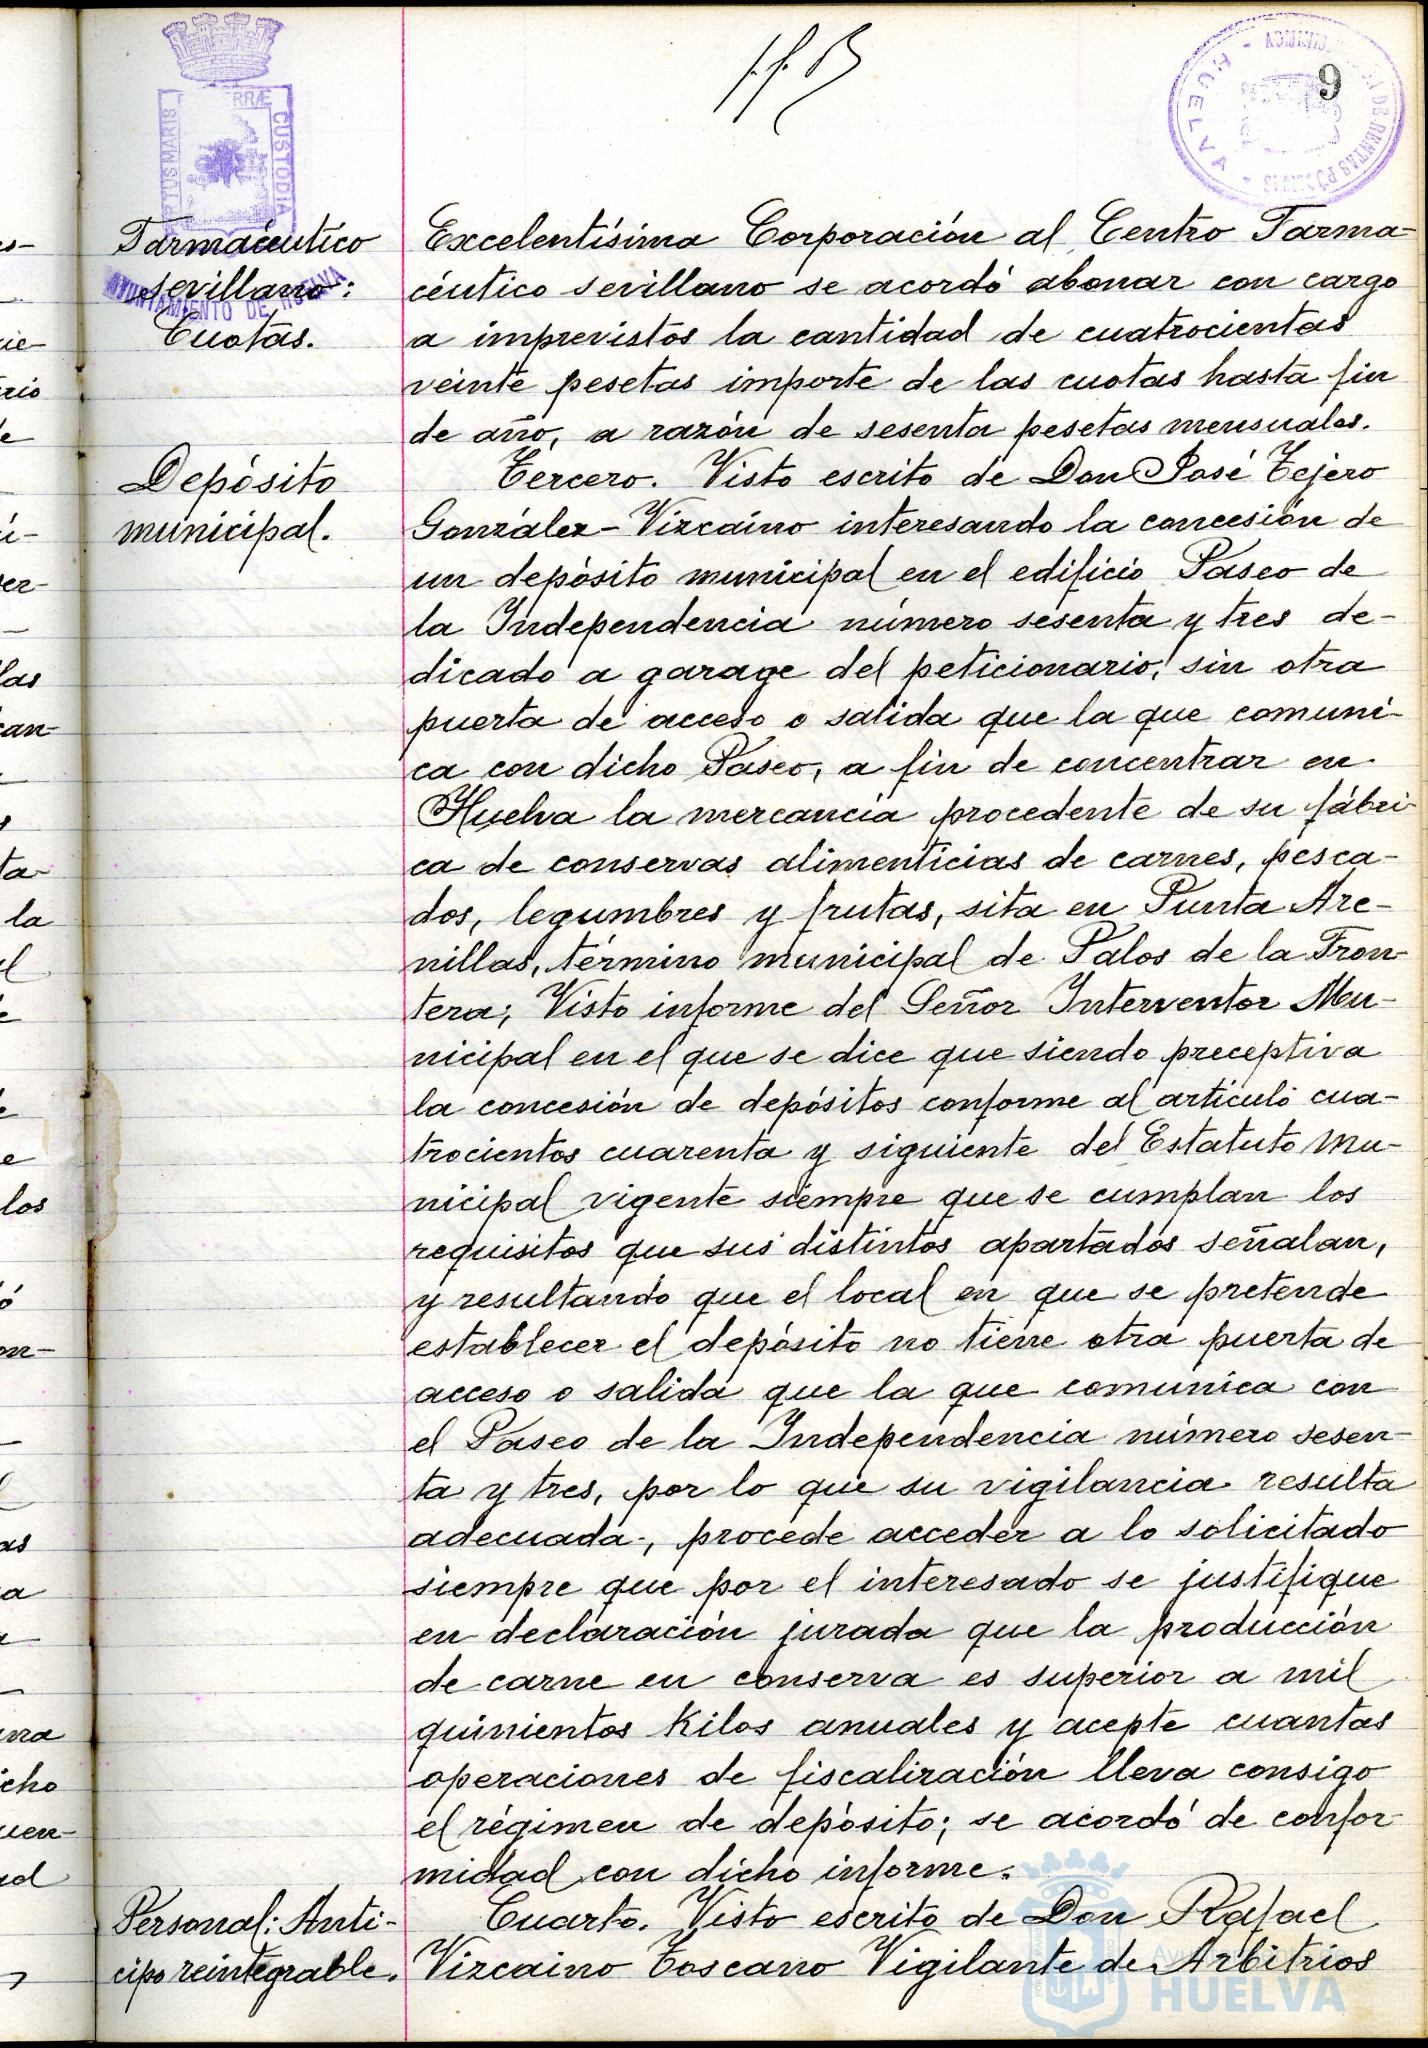 9
PORTUS MARIS ET TERRÆ CUSTODIA
AYUNTAMIENTO DE HUELVA
HUELVA
Farmacéutico
sevillano:
Cuotas.
Excelentísima Corporación al Centro Farma-
céutico sevillano se acordó abonar con cargo
a imprevistos la cantidad de cuatrocientas
veinte pesetas importe de las cuotas hasta fin
de año, a razón de sesenta pesetas mensuales.
Depósito
municipal.
Tercero. Visto escrito de Don José Tejero
González-Vizcaíno interesando la concesión de
un depósito municipal en el edificio Paseo de
la Independencia número sesenta y tres de-
dicado a garage del peticionario, sin otra
puerta de acceso o salida que la que comuni-
ca con dicho Paseo, a fin de concentrar en
Huelva la mercancía procedente de su fábri-
ca de conservas alimenticias de carnes, pesca-
dos, legumbres y frutas, sita en Punta Are-
nillas, término municipal de Palos de la Fron-
tera; Visto informe del Señor Interventor Mu-
nicipal en el que se dice que siendo preceptiva
la concesión de depósitos conforme al artículo cua-
trocientos cuarenta y siguiente del Estatuto Mu-
nicipal vigente siempre que se cumplan los
requisitos que sus distintos apartados señalan,
y resultando que el local en que se pretende
establecer el depósito no tiene otra puerta de
acceso o salida que la que comunica con
el Paseo de la Independencia número sesen-
ta y tres, por lo que su vigilancia resulta
adecuada, procede acceder a lo solicitado
siempre que por el interesado se justifique
en declaración jurada que la producción
de carne en conserva es superior a mil
quinientos kilos anuales y acepte cuantas
operaciones de fiscalización lleva consigo
el régimen de depósito; se acordó de confor-
midad con dicho informe.
Personal: Anti-
cipo reintegrable.
Cuarto. Visto escrito de Don Rafael
Vizcaino Toscano Vigilante de Arbitrios
Ayuntamiento de
HUELVA